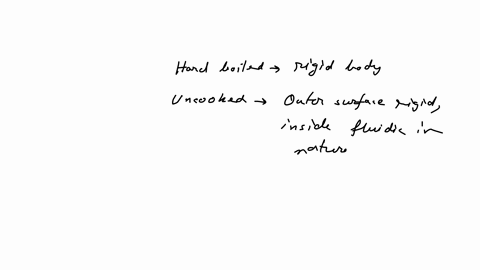 Hard boiled → rigid body
Uncooked → Outer surface rigid,
inside fluidic in
nature